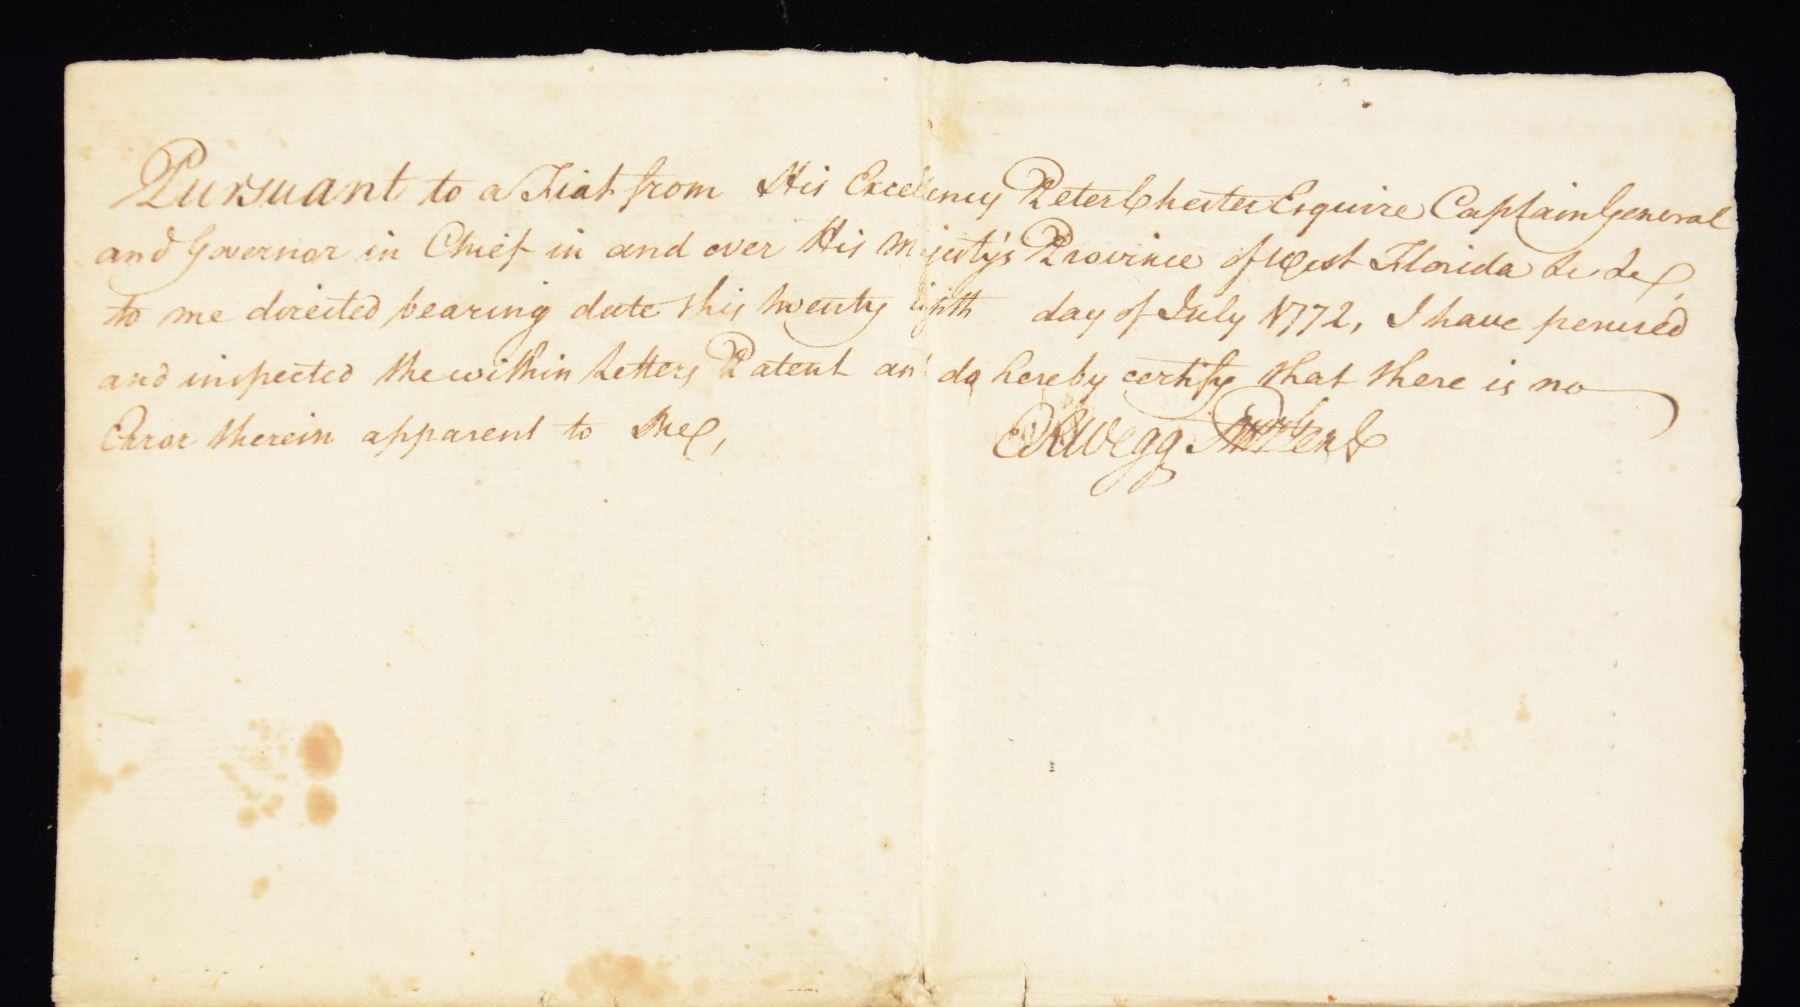 Pursuant to a Fiat from His Excellency Peter Chester Esquire Captain General
and Governor in Chief in and over His Majesty's Province of West Florida &c &c
to me directed bearing date this twenty eighth day of July 1772, I have perused
and inspected the within Letters Patent and do hereby certify that there is no
Error therein apparent to Me,
E R Wegg